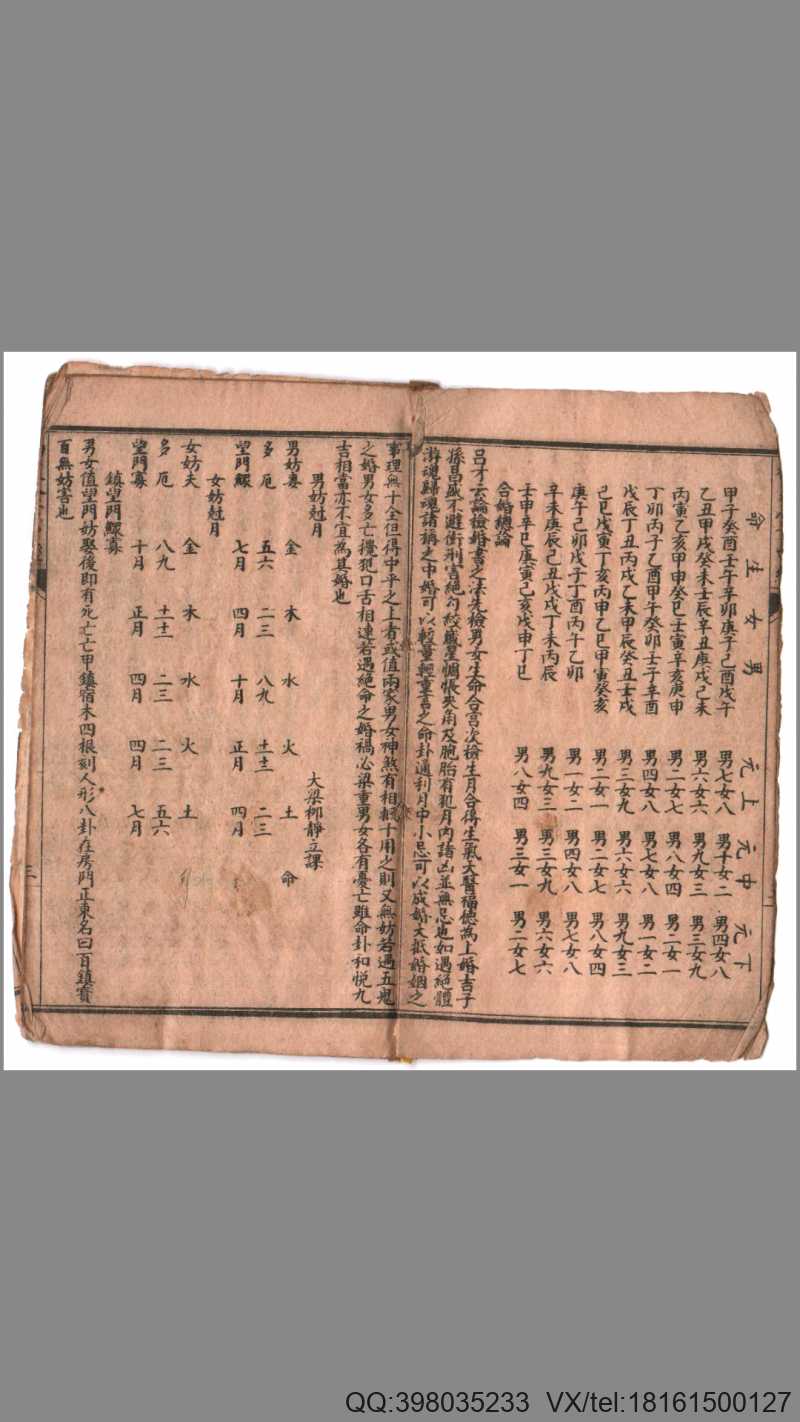 男女生命 上元 中元 下元
甲子癸酉壬午辛卯庚子己酉戊午 男七女八 男千女二 男四女八
乙丑甲戌癸未壬辰辛丑庚戌己未 男六女六 男九女三 男三女九
丙寅乙亥甲申癸巳壬寅辛亥庚申 男二女七 男八女四 男二女一
丁卯丙子乙酉甲午癸卯壬子辛酉 男四女八 男七女八 男一女二
戊辰丁丑丙戌乙未甲辰癸丑壬戌 男三女九 男六女六 男九女三
己巳戊寅丁亥丙申乙巳甲寅癸亥 男二女一 男二女七 男八女四
庚午己卯戊子丁酉丙午乙卯 男一女二 男四女八 男七女八
辛未庚辰己丑戊戌丁未丙辰 男九女三 男三女九 男六女六
壬申辛巳庚寅己亥戊申丁巳 男八女四 男三女一 男二女七
合婚總論
呂才云論檢婚書之法先檢男女生命合宮次檢生月合得生氣天醫福德為上婚吉子
孫昌盛不避衝刑害絕勾絞歲星惆悵夾角及胞胎有犯月內諸凶並無忌也如遇絕體
游魂歸魂諸稱之中婚可以較量輕重言之命卦通利月中小忌可以成婚大抵婚姻之
事理無十全但得中平之上者或值兩家男女神煞有相十用之則又無妨若遇五鬼
之婚男女多亡擾犯口舌相連若遇絕命之婚禍必梁重男女各有憂亡雖命卦和悅九
吉相當亦不宜為其婚也
大梁柳靜立課
男妨尅月
男妨妻 金 木 水 火 土 命
多厄 五六 二三 八九 十二 二三
望門鰥 七月 四月 十月 正月 四月
女妨尅月
女妨夫 金 木 水 火 土
多厄 八九 十二 二三 二三 五六
望門寡 十月 正月 四月 四月 七月
鎮望門鰥寡
男女值望門妨娶後即有死亡亡甲鎮宿木四根刻人形八卦在房門正東名曰百鎮寶
百無妨害也
三
QQ:398035233 VX/tel:18161500127